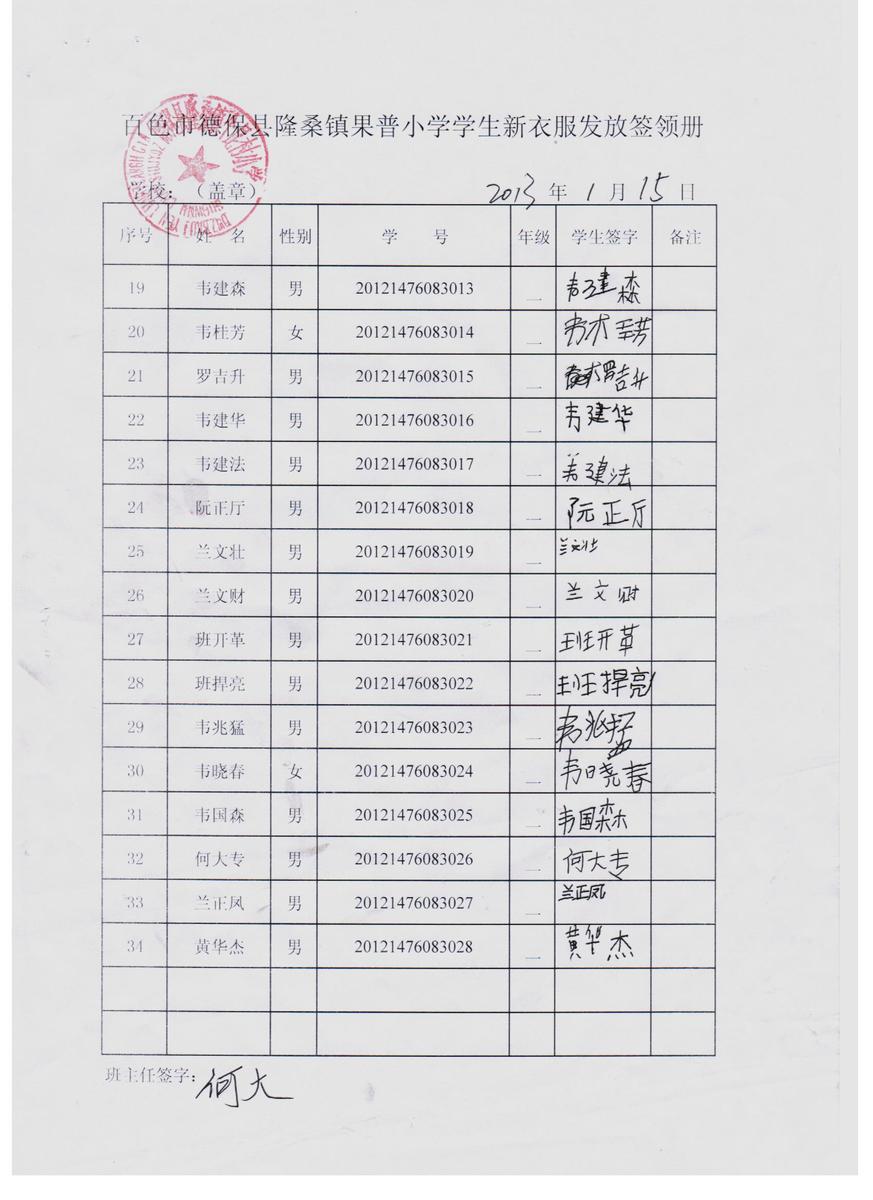 百色市德保县隆桑镇果普小学学生新衣服发放签领册
学校：（盖章） 2013 年 1 月 15 日
序号 姓 名 性别 学 号 年级 学生签字 备注
19 韦建森 男 20121476083013 二 韦建森
20 韦桂芳 女 20121476083014 二 韦桂芳
21 罗吉升 男 20121476083015 二 罗吉升
22 韦建华 男 20121476083016 二 韦建华
23 韦建法 男 20121476083017 二 韦建法
24 阮正厅 男 20121476083018 二 阮正厅
25 兰文壮 男 20121476083019 二 兰文壮
26 兰文财 男 20121476083020 二 兰文财
27 班开革 男 20121476083021 二 班开革
28 班捍亮 男 20121476083022 二 班捍亮
29 韦兆猛 男 20121476083023 二 韦兆猛
30 韦晓春 女 20121476083024 二 韦晓春
31 韦国森 男 20121476083025 二 韦国森
32 何大专 男 20121476083026 二 何大专
33 兰正凤 男 20121476083027 二 兰正凤
34 黄华杰 男 20121476083028 二 黄华杰
班主任签字：何大